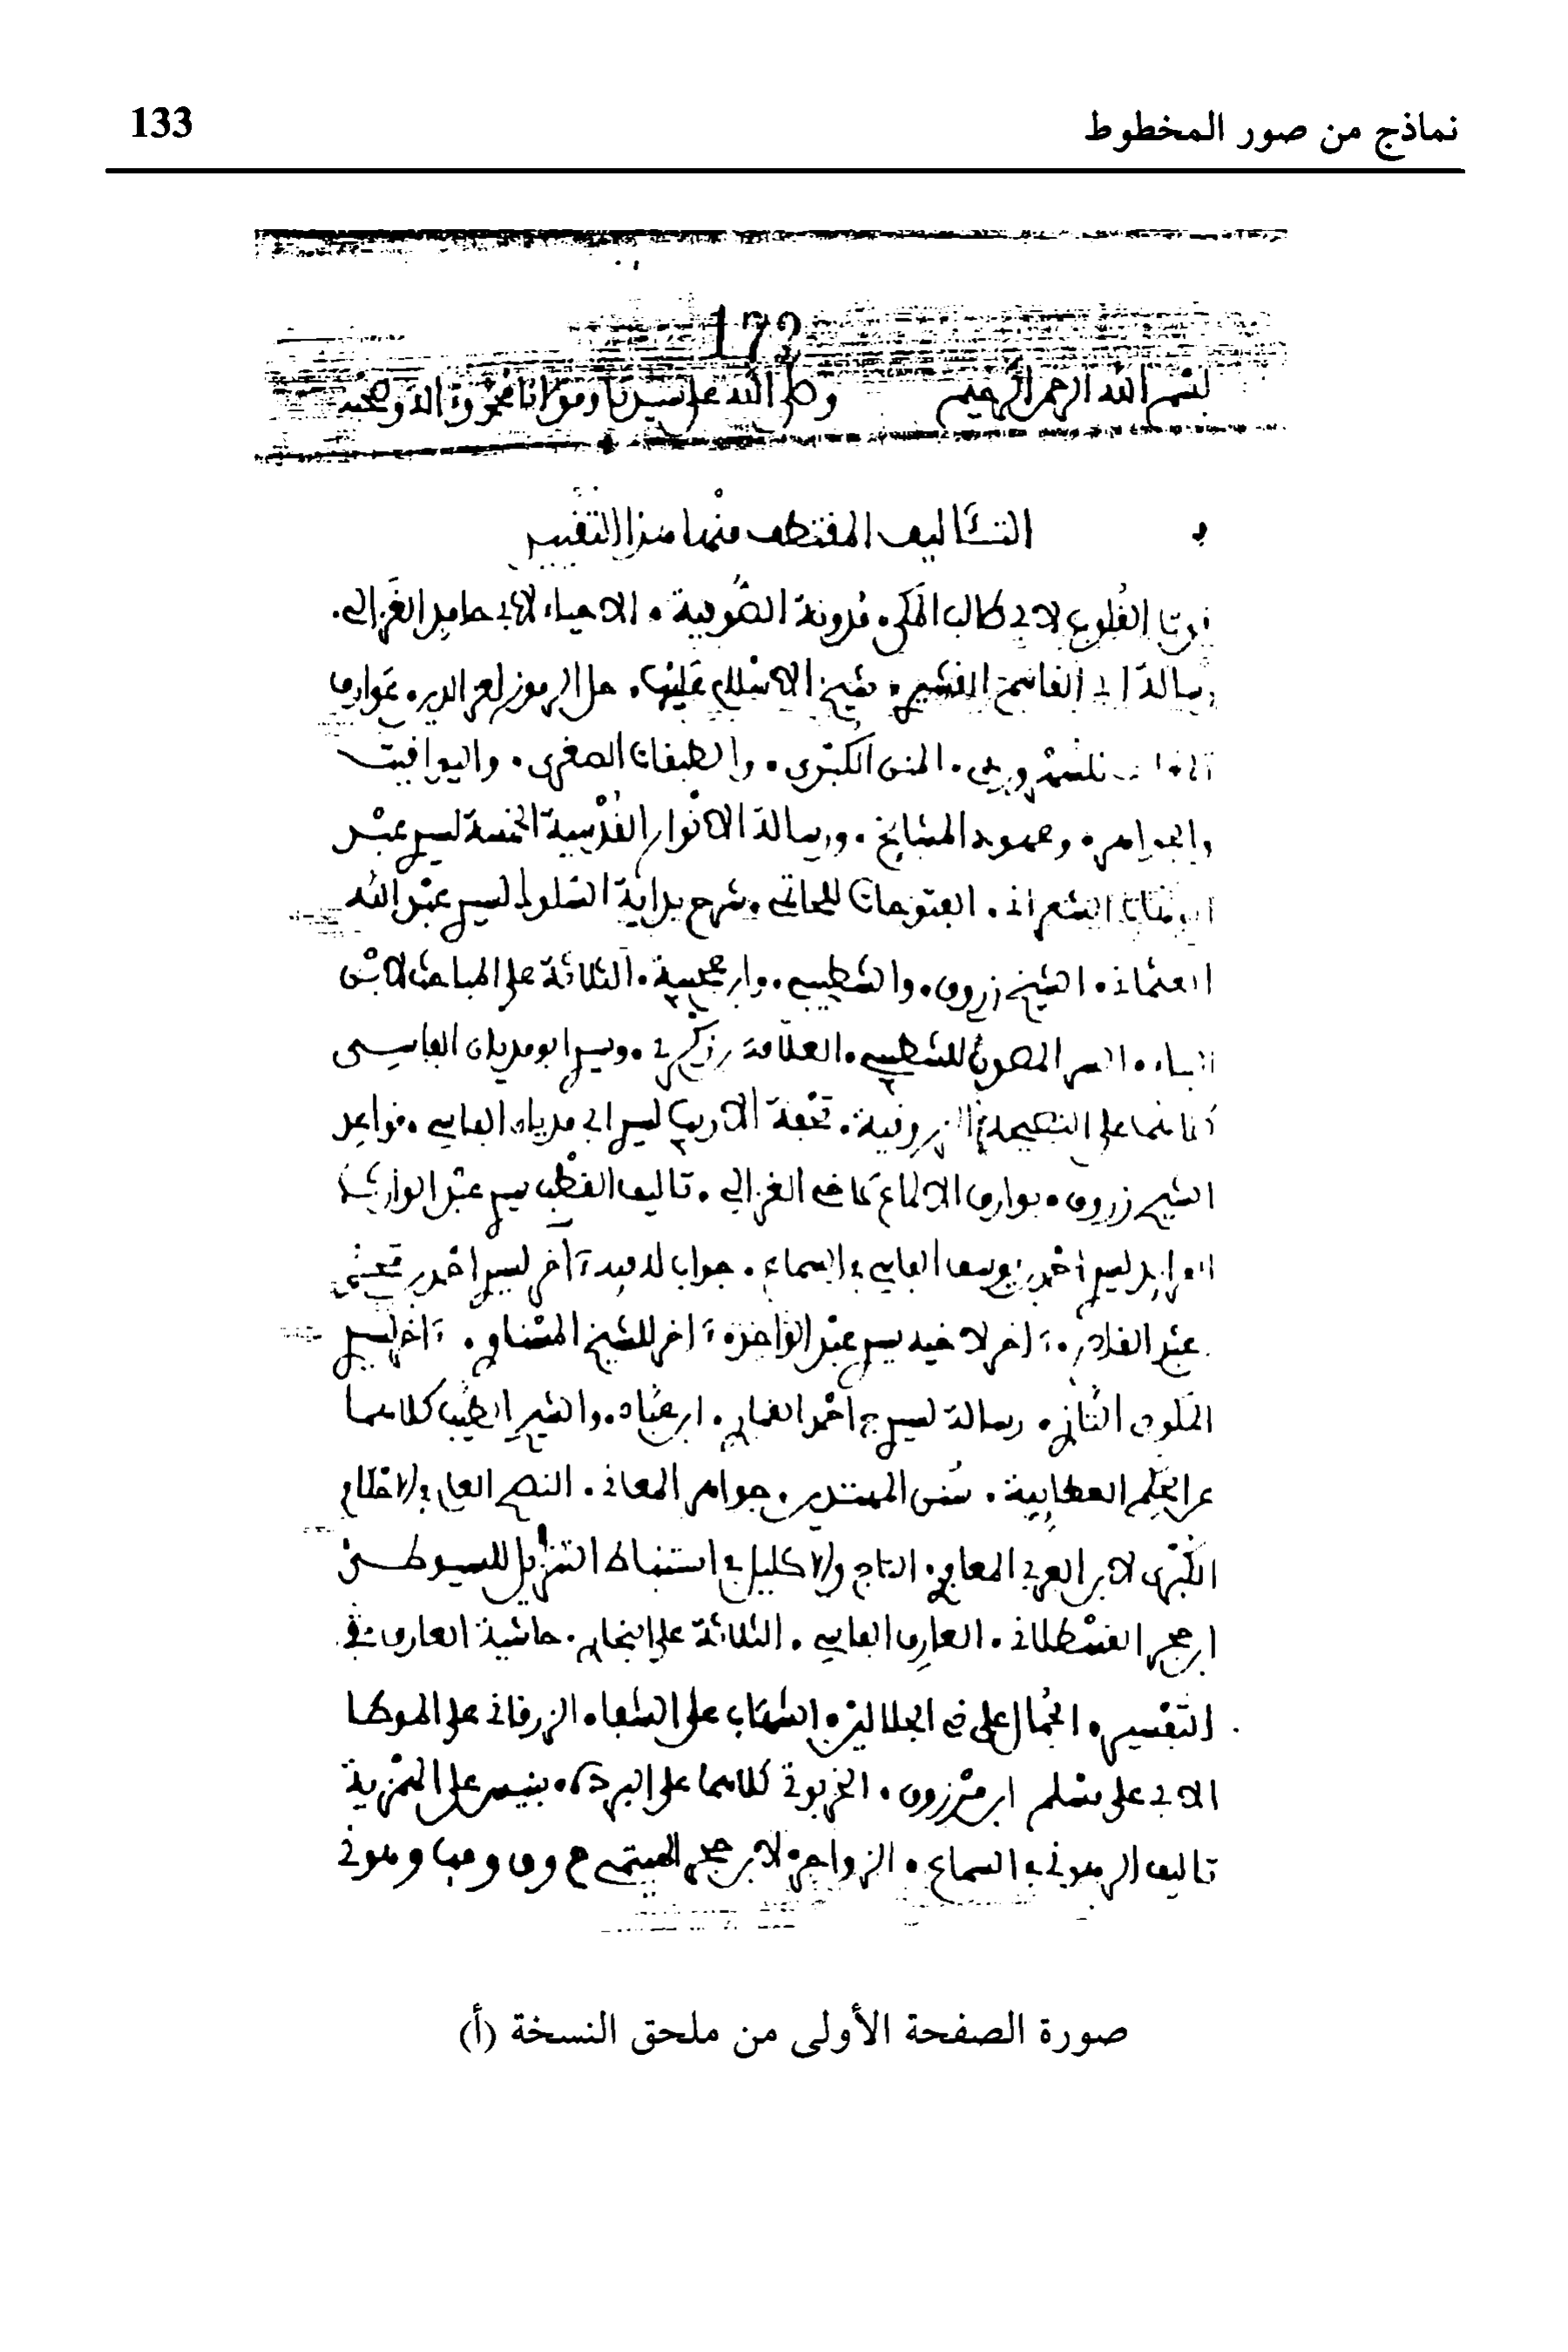 نماذج من صور المخطوط
133
172
بسم الله الرحمن الرحيم وصلى الله على سيدنا ومولانا محمد وآله وصحبه
التآليف المقتطف منها هذا التقييد
قوت القلوب لابي طالب المكي. مدونة الصوفية. الاحياء لابي حامد الغزالي.
رسالة ابي القاسم القشيري. شيخ الاسلام عليها. حل الرموز لعز الدين. عوارف
للسهروردي. المنن الكبرى. والطبقات الصغرى. واليواقيت
والجواهر. وعهود المشايخ. ورسالة الانوار القدسية الخمسة لسيدي عبد
الوهاب الشعراني. الفتوحات للحاتمي. شرح بداية السلوك لسيدي عبد الله
العثماني. الشيخ زروق. والشطيبي. وابن عجيبة. الثلاثة على المباحث لابن
البناء. السر المصون للشطيبي. العلامة ابن زكري. وسيدي ابو مدين الفاسي
كلاهما على النصيحة الزروقية. تحفة الاريب لسيدي ابي مدين الفاسي. قواعد
الشيخ زروق. بوارق الالماع لاخي الغزالي. تاليف القطب سيدي عبد الوارث
لسيدي احمد بن يوسف الفاسي في السماع. جواب لحفيده آخر لسيدي احمد بن
عبد القادر. آخر لاخيه سيدي عبد الواحد. آخر للشيخ المسناوي. آخر لسيدي
الملوي الثاني. رسالة لسيدي ج احمد الغماري. ابن عباد. والشيخ الطيب كلاهما
على الحكم العطايية. سنن المهتدين. جواهر المعاني. النصح العام. الاحكام
الكبرى لابن العربي المعافري. التاج والاكليل في استنباط التنزيل للسيوطي
ابن حجر القسطلاني. العارف الفاسي. الثلاثة على البخاري. حاشية العارف في
التفسير. الجمال على ذي الجلالين. الشهاب على الشفاء. الزرقاني على الموطا
الابي على مسلم ابن مرزوق. الخربوتي كلاهما على البردة. بنيس على الهمزية
تاليف الرهوني في السماع. الزواجر لابن حجر الهيتمي
صورة الصفحة الأولى من ملحق النسخة (أ)